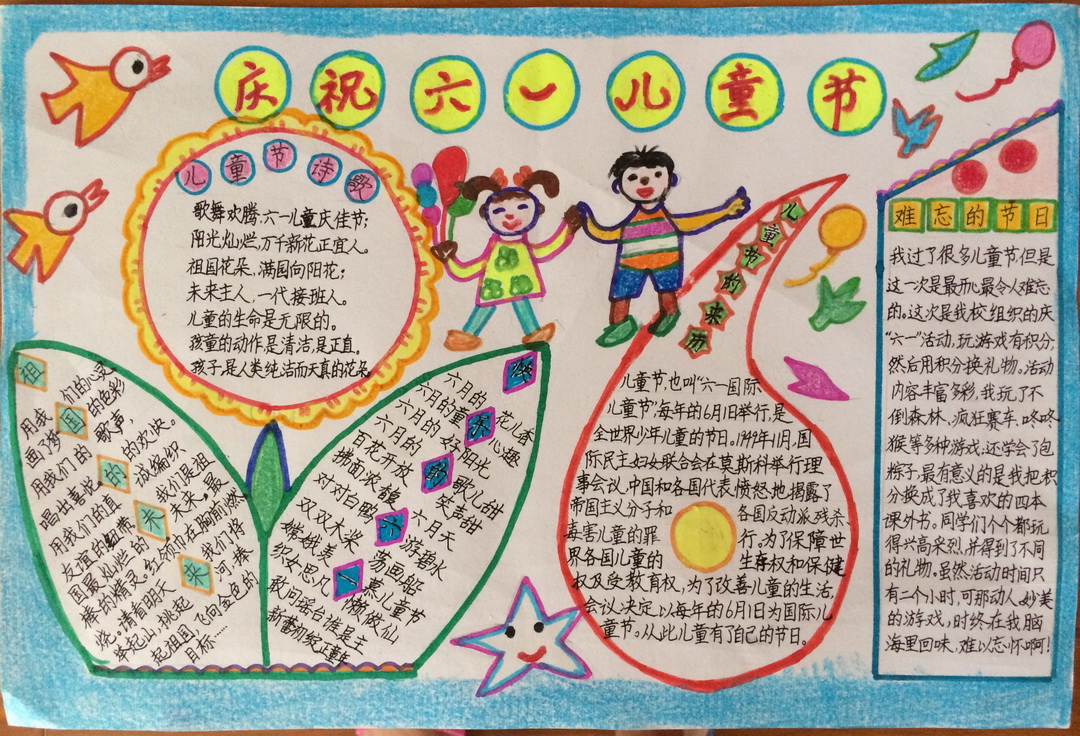 庆祝六一儿童节
儿童节诗歌
歌舞欢腾,六一儿童庆佳节;
阳光灿烂,万千新花正宜人。
祖国花朵,满园向阳花;
未来主人,一代接班人。
儿童的生命是无限的。
孩童的动作是清洁,是正直。
孩子,是人类纯洁而天真的花朵
祖国的未来
用我们的心灵
画了梦的色彩
用我们的歌声
唱出喜悦的欢快。
用我们的真诚编织
友谊的我们是祖
国最灿烂的未来。最
棒的精灵。红领巾在胸前燃
烧。清着明天我们将
举起山,挑起可棒
起祖国飞向金色的
目标……
快乐的六一
六月的花儿香
六月的童心趣
六月的好阳光
百花开放歌儿甜
拂面浓馥笑声甜
对对白鸥六月天
双双木桨游碧水
嫦娥羡荡画船
织女思凡慕儿童节
敢问瑶台谁是主
懒做仙
新蕾初绽正童年
儿童节的来历
儿童节,也叫“六一国际
儿童节”,每年的6月1日举行,是
全世界少年儿童的节日。1949年11月,国
际民主妇女联合会在莫斯科举行理
事会议,中国和各国代表愤怒地揭露了
帝国主义分子和各国反动派残杀、
毒害儿童的罪行。为了保障世
界各国儿童的生存权和保健
权及受教育权,为了改善儿童的生活,
会议决定以每年的6月1日为国际儿
童节。从此儿童有了自己的节日。
难忘的节日
我过了很多儿童节但是
这一次是最开心最令人难忘
的。这次是我校组织的庆
“六一”活动,玩游戏有积分,
然后用积分换礼物。活动
内容丰富多彩,我玩了不
倒森林、疯狂赛车、咚咚
猴等多种游戏,还学会了包
粽子,最有意义的是我把积
分换成了我喜欢的四本
课外书。同学们个个都玩
得兴高采烈,并得到了不同
的礼物。虽然活动时间只
有二个小时,可那动人、妙美
的游戏,时终在我脑
海里回味,难以忘怀啊!